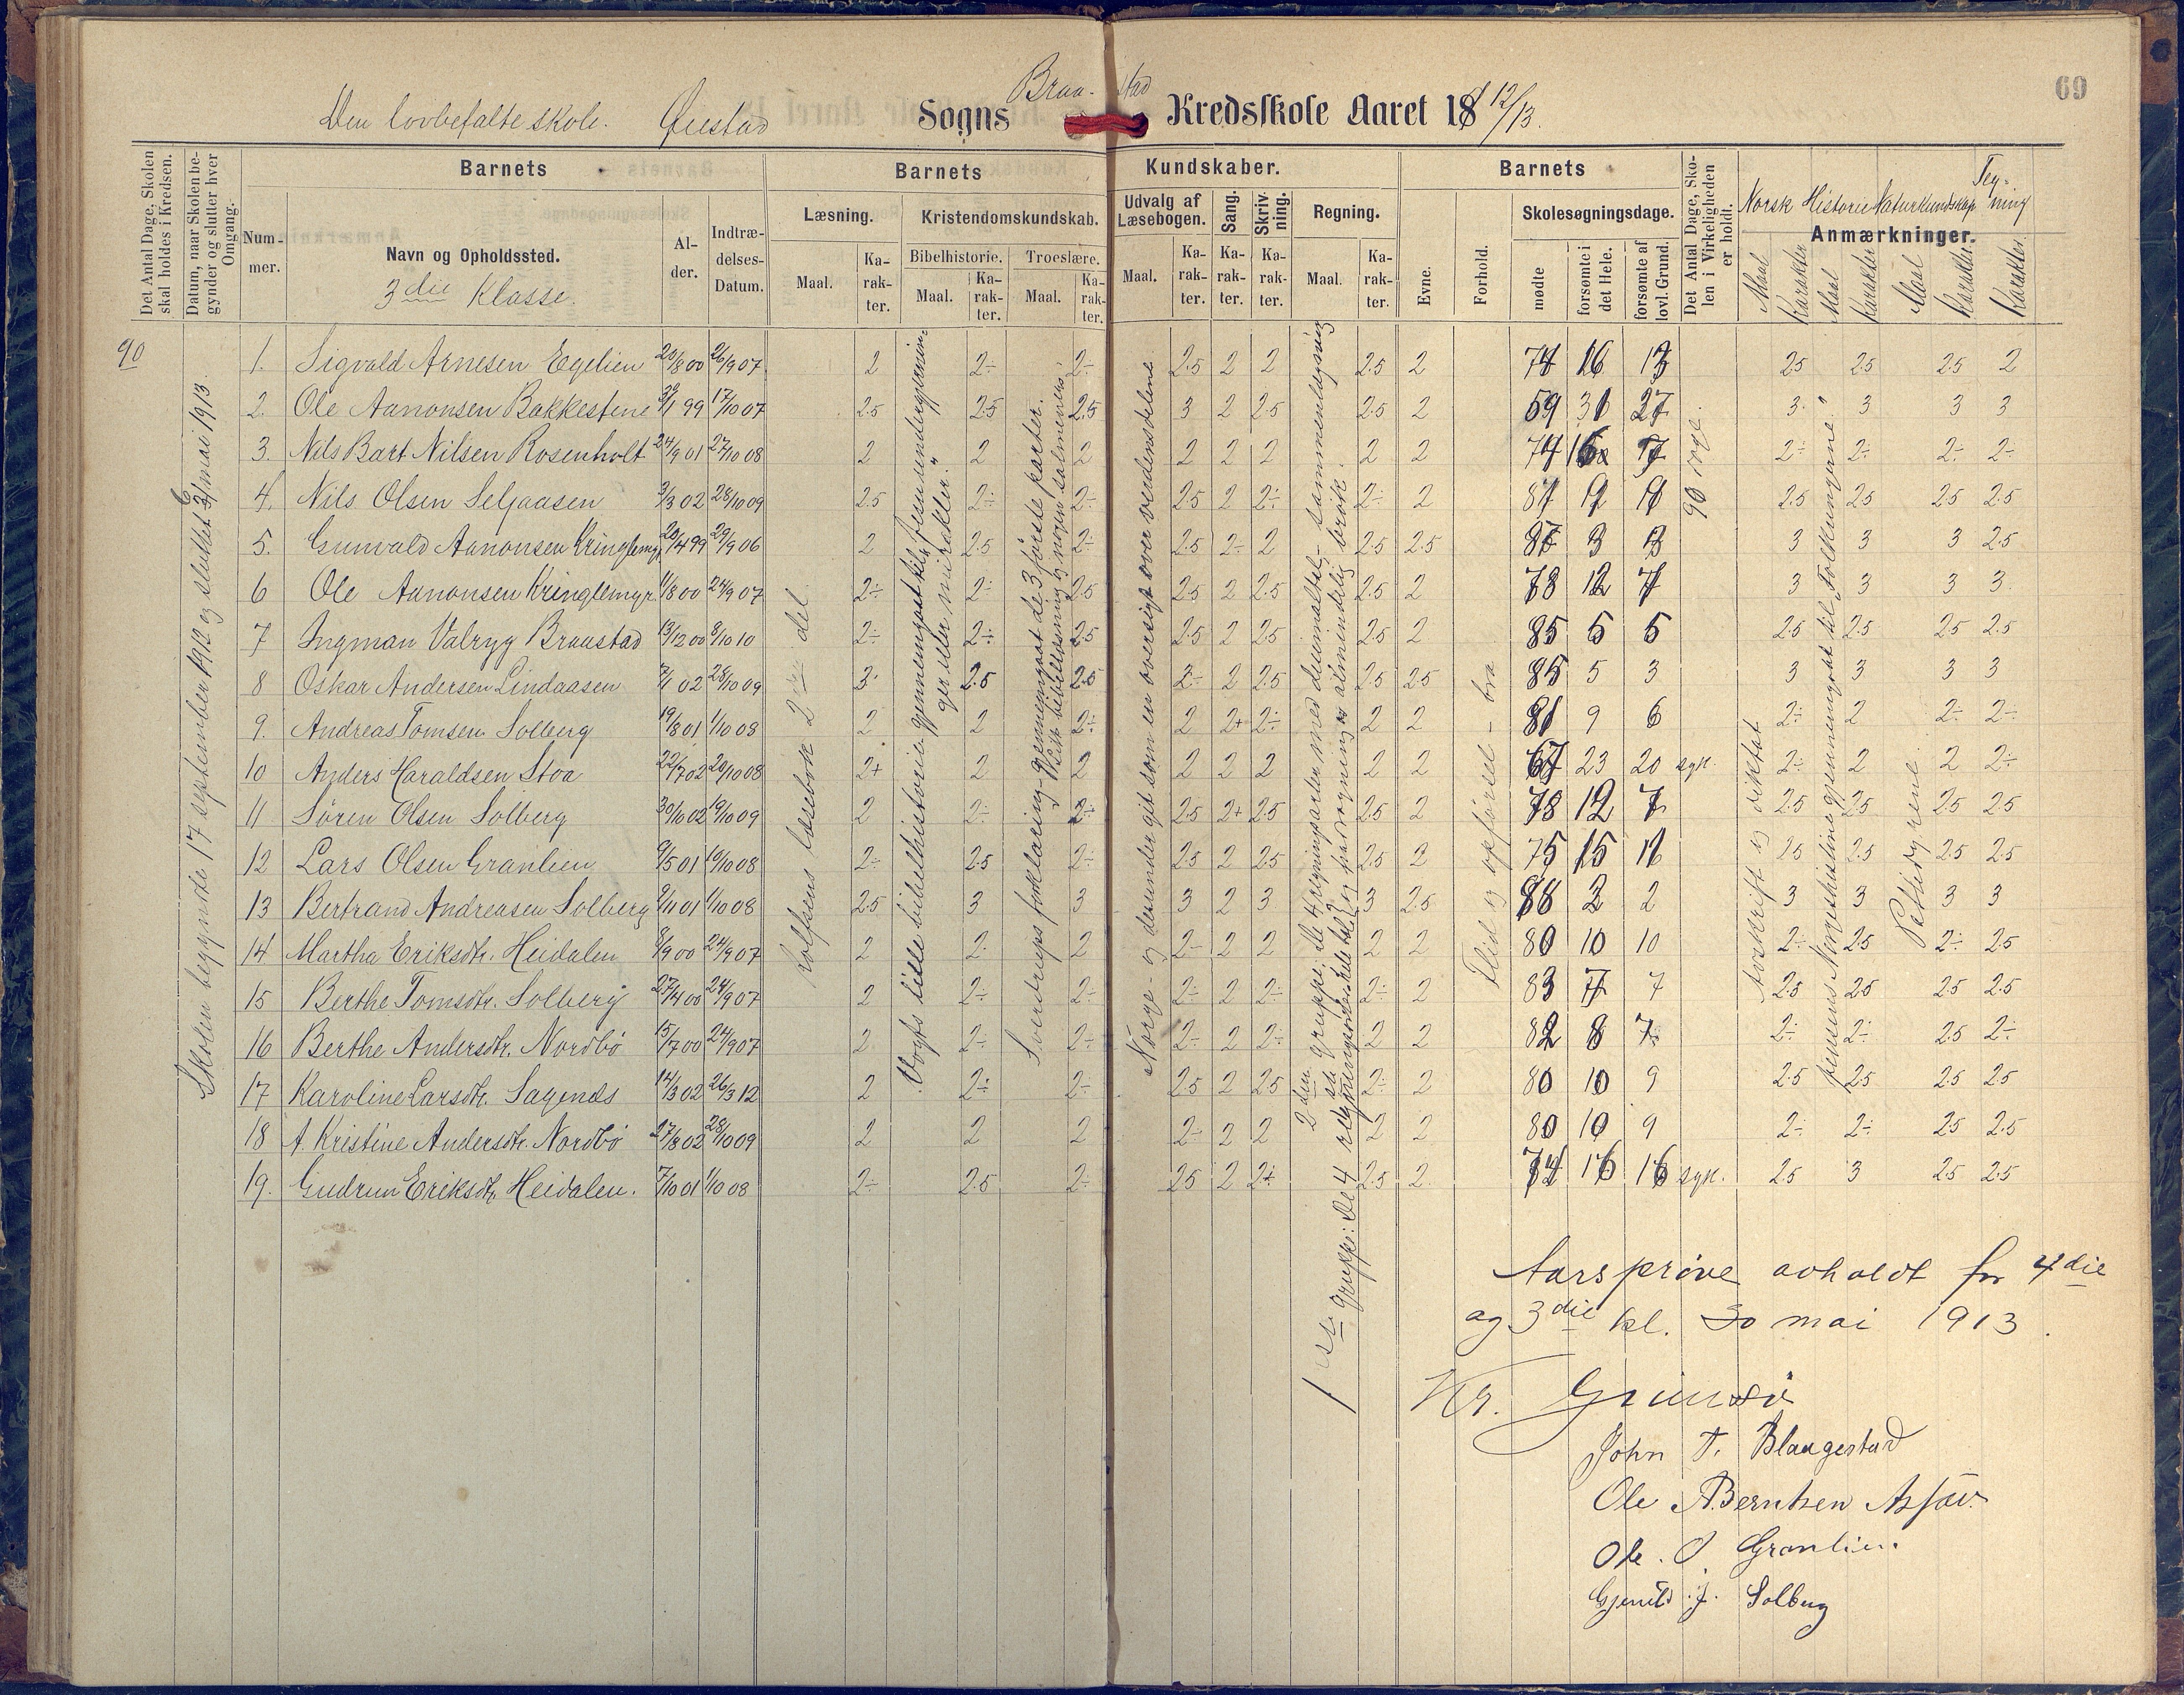 69
Den lovbefalte skole. Øiestad Sogns Braa-stad Kredsskole Aaret 1812/13.
Det Antal Dage, Skolen skal holdes i Kredsen.
Datum, naar Skolen begynder og slutter hver Omgang.
Barnets
Nummer.
Navn og Opholdssted.
3die Klasse.
Alder.
Indtrædelses-Datum.
Barnets Kundskaber.
Læsning. Kristendomskundskab. Udvalg af Læsebogen. Sang. Skrivning. Regning.
Bibelhistorie. Troeslære.
Maal. Karakter. Maal. Karakter. Maal. Karakter. Maal. Karakter. Karakter. Karakter. Maal. Karakter.
Barnets
Evne. Forhold. Skolesøgningsdage.
mødte forsømte i det Hele. forsømte af lovl. Grund.
Det Antal Dage, Skolen i Virkeligheden er holdt.
Norsk Historie Naturkundskap Tegning
Anmærkninger.
Maal Karakter Maal Karakter Maal Karakter Karakter
90
Skolen begyndte 17 september 1912 og sluttet 31 mai 1913.
Rolfsens læsebok 2den del.
Vogts lille bibelhistorie gjennemgaat til "Jesu undergjerninger eller mirakler."
Sverdrups forklaring gjennemgaat de 3 første parter. Litt bibellæsning og nogen salmevers.
Norge - og desunder git som en oversigt over verdensdelene
1ste gruppe: De 4 regningsarter i hele tal
2den gruppe: de 4 regningsarter med decimaltal, sammenlægning og almindelig brøk.
Flid og opførsel - bra
90 dage
Avskrift og diktat
Jensens Norgeshistorie gjennemgaat til "Folkungerne".
Pattedyrene
1. Sigvald Arnesen Egelien 20/8 00 26/9 07 2 2÷ 2÷ 2.5 2 2 2.5 2 74 16 13 2.5 2.5 2.5 2
2. Ole Aanonsen Bakkestene 3/1 99 17/10 07 2.5 2.5 2.5 3 2 2.5 2.5 2 59 31 27 3 3 3 3
3. Nils Bart Nilsen Rosenholt 24/9 01 27/10 08 2 2 2 2 2 2 2 2 74 16 2÷ 2÷ 2÷ 2÷
4. Nils Olsen Seljaasen 3/3 02 28/10 09 2.5 2÷ 2÷ 2.5 2 2÷ 2÷ 2 2.5 2.5 2.5 2.5
5. Gunvald Aanonsen Kringlemyr 20/4 99 29/9 06 2 2.5 2÷ 2.5 2÷ 2 2.5 2.5 87 3 3 3 3 3 2.5
6 Ole Aanonsen Kringlemyr 11/8 00 24/9 07 2÷ 2÷ 2.5 2.5 2 2.5 2.5 2 78 12 7 3 3 3 3.
7 Ingman Valryg Braastad 13/12 00 8/10 10 2÷ 2÷ 2.5 2.5 2 2.5 2.5 2 85 5 5 2.5 2.5 2.5 2.5
8 Oskar Andersen Lindaasen 7/1 02 28/10 09 3 2.5 2.5 2÷ 2 2.5 2.5 2.5 85 5 3 3 3 3 3
9. Andreas Tomsen Solberg 19/8 01 1/10 08 2 2 2÷ 2 2+ 2÷ 2 2 81 9 6 2÷ 2 2÷ 2÷
10 Anders Haraldsen Stoa 22/7 02 20/10 08 2+ 2 2 2 2 2 2 2 67 23 20 syk. 2÷ 2 2 2÷
11 Søren Olsen Solberg 30/10 02 19/10 09 2 2÷ 2÷ 2.5 2+ 2.5 2.5 2 78 12 7 2.5 2.5 2.5 2.5
12 Lars Olsen Granlien 9/5 01 19/10 08 2÷ 2.5 2÷ 2.5 2 2.5 2.5 2 75 15 11 2.5 2.5 2.5 2.5
13 Bertrand Andreasen Solberg 9/11 01 1/10 08 2.5 3 3 3 2 3 3 2.5 88 2 2 3 3 3 3
14 Martha Eriksdtr. Heidalen 8/9 00 24/9 07 2 2÷ 2 2÷ 2 2 2 2 80 10 10 2÷ 2.5 2÷ 2.5
15 Berthe Tomsdtr. Solberg 27/4 00 24/9 07 2 2÷ 2÷ 2÷ 2 2÷ 2÷ 2 83 7 7 2.5 2.5 2.5 2.5
16 Berthe Andersdtr. Nordbö 15/7 00 24/9 07 2 2÷ 2÷ 2÷ 2 2÷ 2 2 82 8 7 2÷ 2÷ 2.5 2÷
17 Karoline Larsdtr. Sagenes 14/3 02 26/3 12 2 2÷ 2÷ 2.5 2 2.5 2÷ 2 80 10 9 2.5 2.5 2.5 2.5
18 A. Kristine Andersdtr. Nordbö 27/8 02 28/10 09 2 2 2 2÷ 2 2 2 2 80 10 9 2÷ 2÷ 2.5 2.5
19. Gudrun Eriksdtr. Heidalen. 7/10 01 1/10 08 2÷ 2.5 2÷ 2.5 2 2÷ 2.5 2 74 16 16 syk. 2.5 3 2.5 2.5
Aarsprøve avholdt for 4die
og 3die kl. 30 mai 1913.
Kr. Grimsö
John T. Blaagestad
Ole A. Berntsen
Ole. O Granlien.
J. Solberg